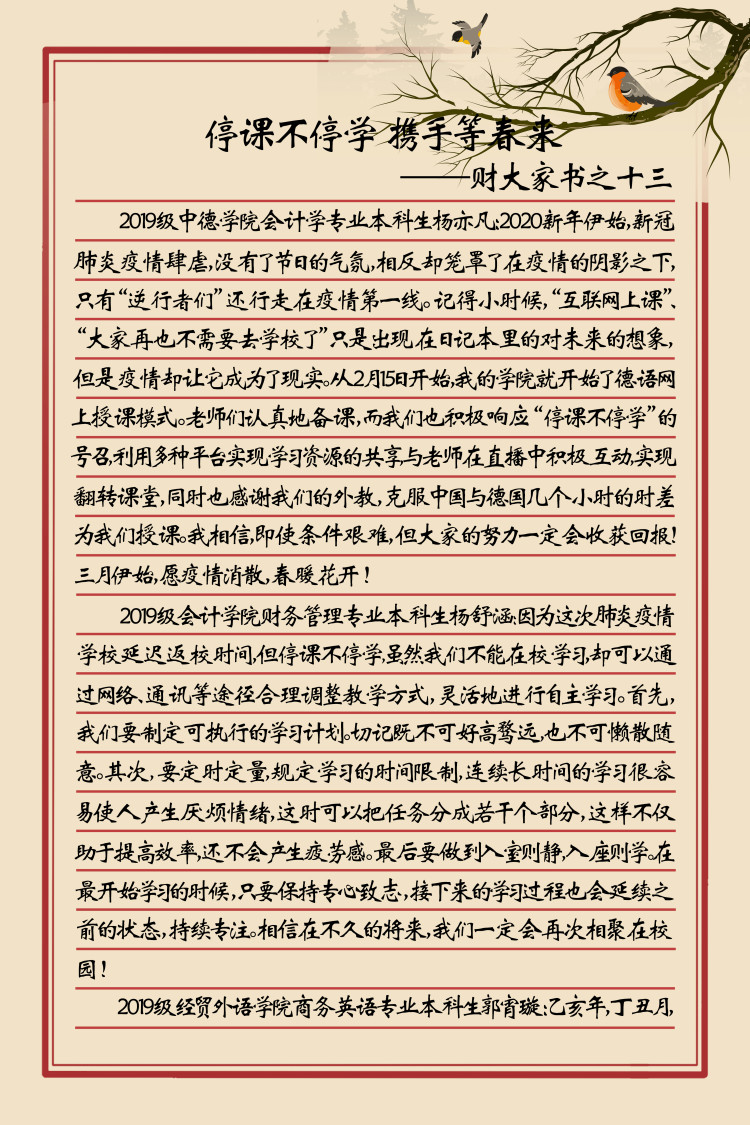 停课不停学 携手等春来
——财大家书之十三
2019级中德学院会计学专业本科生杨亦凡:2020新年伊始,新冠
肺炎疫情肆虐,没有了节日的气氛,相反却笼罩了在疫情的阴影之下,
只有“逆行者们”还行走在疫情第一线。记得小时候,“互联网上课”、
“大家再也不需要去学校了”只是出现在日记本里的对未来的想象,
但是疫情却让它成为了现实。从2月15日开始,我的学院就开始了德语网
上授课模式。老师们认真地备课,而我们也积极响应“停课不停学”的
号召,利用多种平台实现学习资源的共享,与老师在直播中积极互动,实现
翻转课堂,同时也感谢我们的外教,克服中国与德国几个小时的时差
为我们授课。我相信,即使条件艰难,但大家的努力一定会收获回报!
三月伊始,愿疫情消散,春暖花开!
2019级会计学院财务管理专业本科生杨舒涵:因为这次肺炎疫情
学校延迟返校时间,但停课不停学,虽然我们不能在校学习,却可以通
过网络、通讯等途径合理调整教学方式,灵活地进行自主学习。首先,
我们要制定可执行的学习计划。切记既不可好高骛远,也不可懒散随
意。其次,要定时定量,规定学习的时间限制,连续长时间的学习很容
易使人产生厌烦情绪,这时可以把任务分成若干个部分,这样不仅
助于提高效率,还不会产生疲劳感。最后要做到入室则静,入座则学。在
最开始学习的时候,只要保持专心致志,接下来的学习过程也会延续之
前的状态,持续专注。相信在不久的将来,我们一定会再次相聚在校
园!
2019级经贸外语学院商务英语专业本科生郭宵璇:乙亥年,丁丑月,